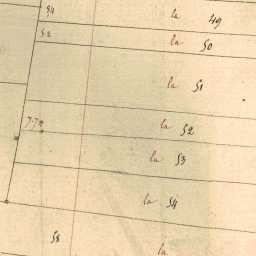 54 la 49
52 la 50
la 51
7.72 la 52
la 53
la 54
58 la